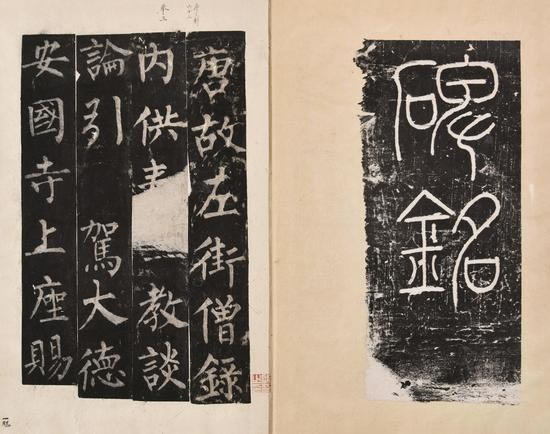 碑銘
唐故左街僧錄
內供 教談
論引 駕大德
安國寺上座賜